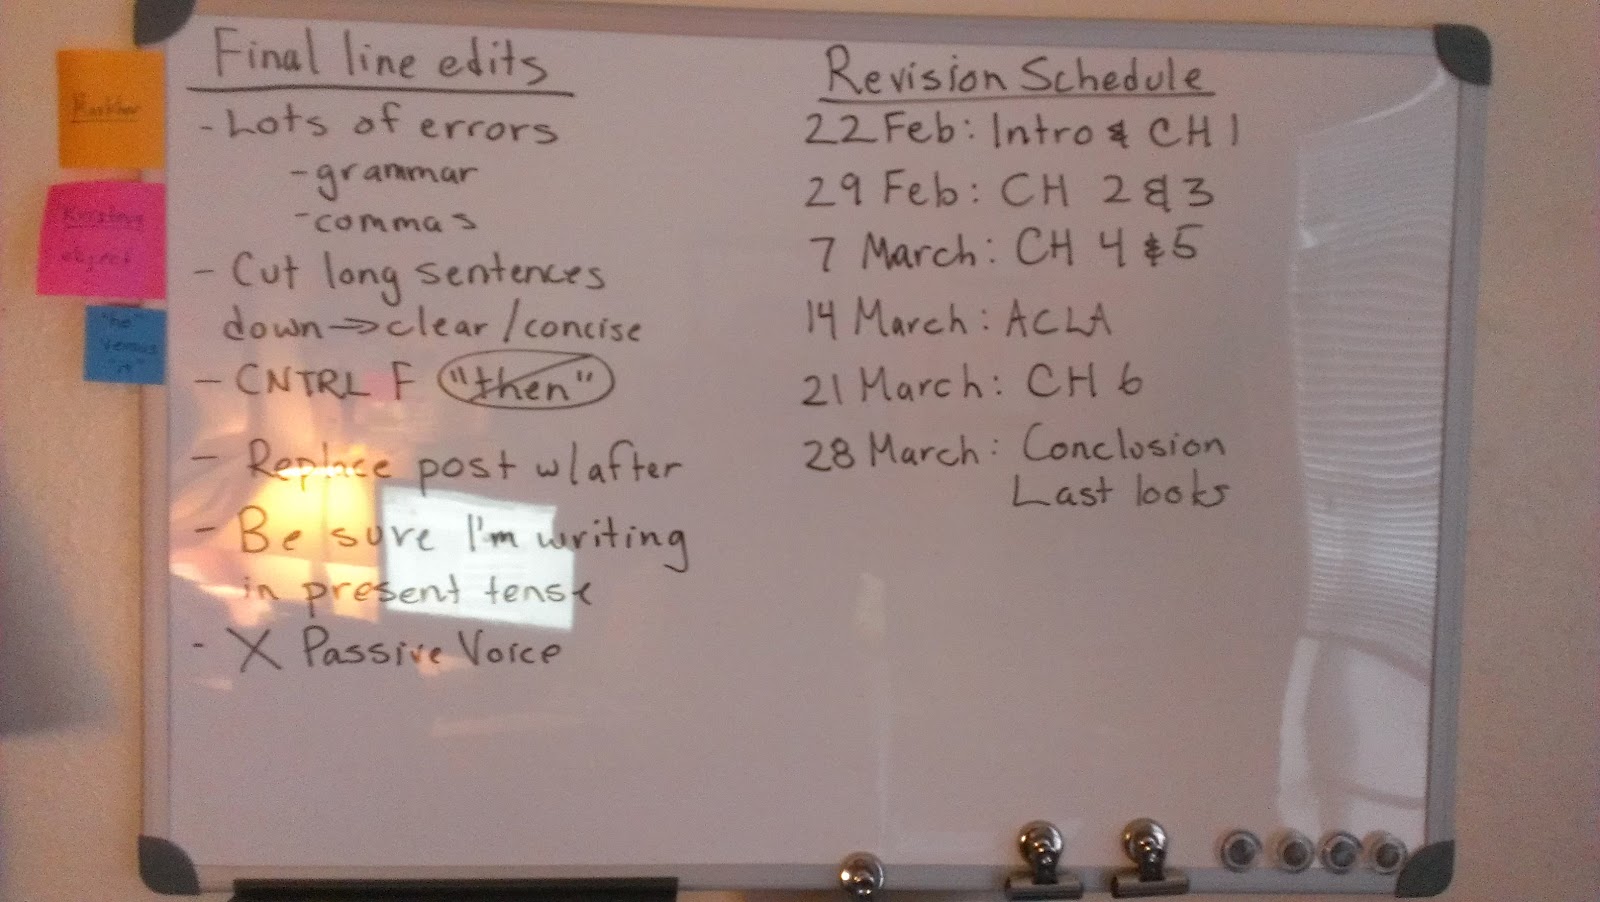 Final line edits
- Lots of errors
- grammar
- commas
- Cut long sentences
down → clear/concise
- CNTRL F "then"
- Replace post w/after
- Be sure I'm writing
in present tense
- X Passive Voice
Revision Schedule
22 Feb: Intro & CH 1
29 Feb: CH 2 & 3
7 March: CH 4 & 5
14 March: ACLA
21 March: CH 6
28 March: Conclusion
Last looks
object
versus